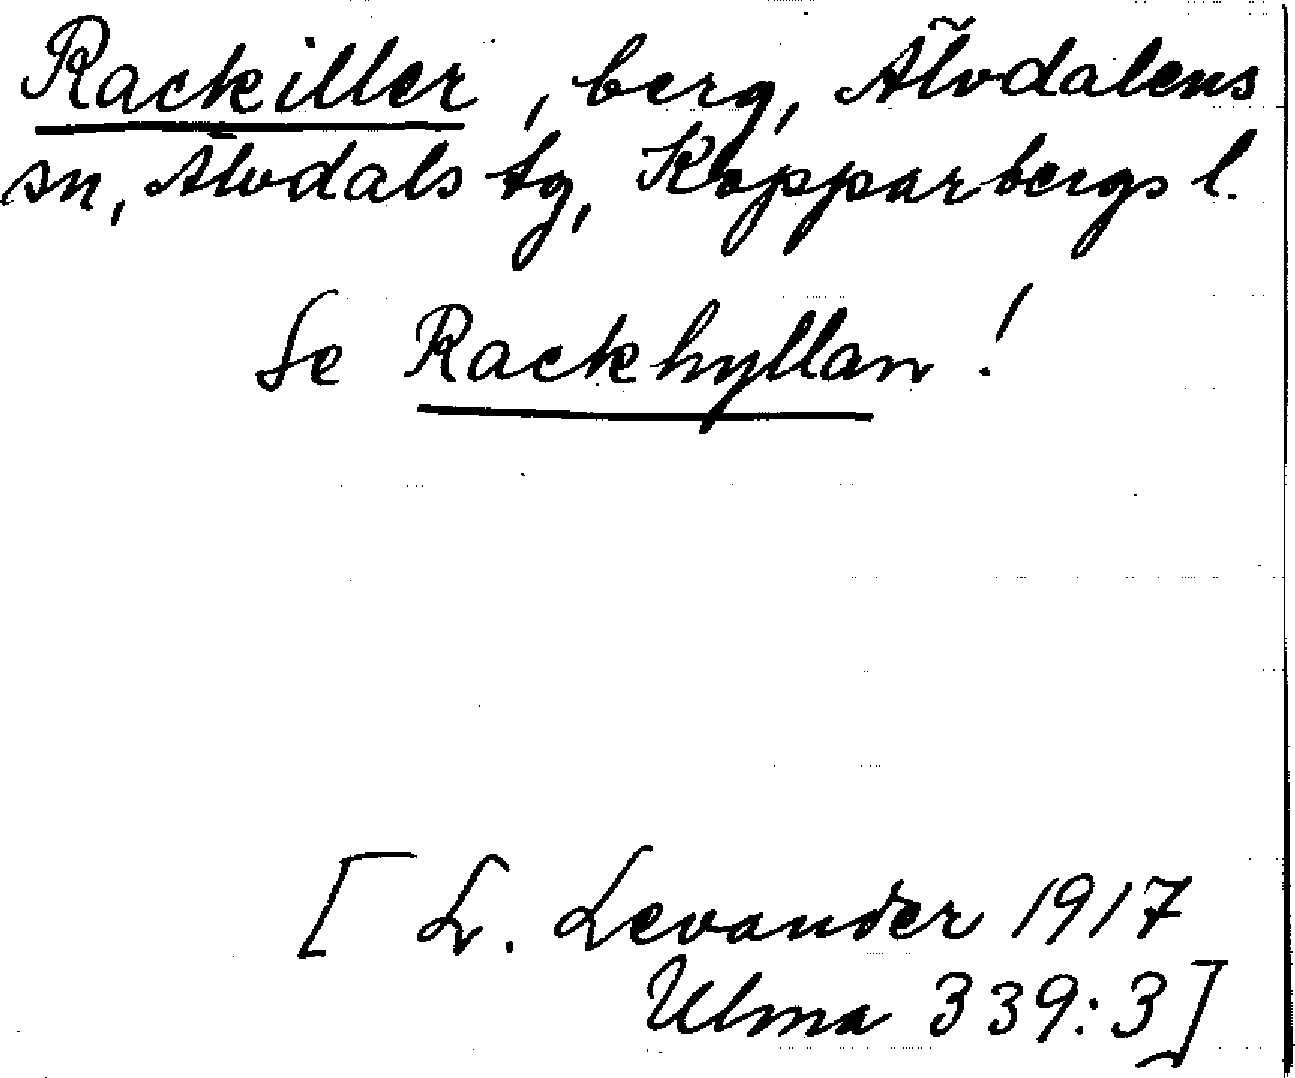 Rackiller, berg, Älvdalens
sn, Älvdals tg, Kopparbergs l.
Se Rackhyllan!
[L. Levander 1917
Ulma 339:3]